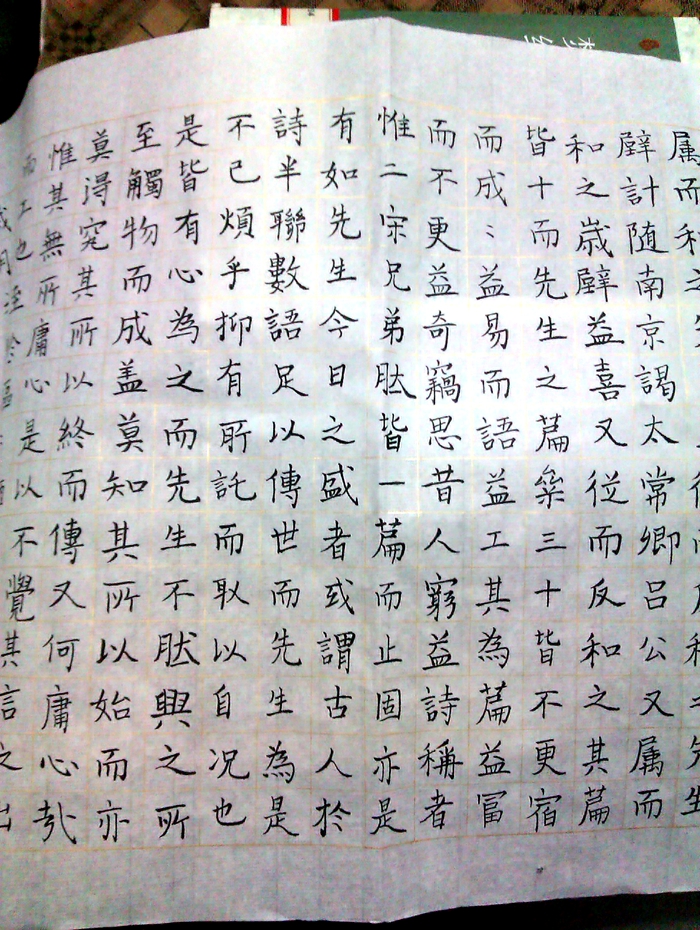 属而和之
壁計随南京謁太常卿吕公又属而
和之歲壁益喜又從而反和之其篇
皆十而先生之篇絫三十皆不更宿
而成〻益易而語益工其為篇益富
而不更益奇竊思昔人窮益詩稱者
惟二宋兄弟肰皆一篇而止固亦是
有如先生今日之盛者或謂古人於
詩半聯數語足以傳世而先生為是
不已煩乎抑有所託而取以自况也
是皆有心為之而先生不肰興之所
至觸物而成盖莫知其所以始而亦
莫得究其所以終而傳又何庸心哉
惟其無所庸心是以不覺其言之出
而工也